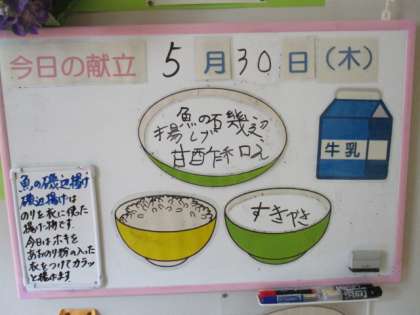 今日の献立 5月30日(木)
魚の磯辺
揚げ
甘酢和え
牛乳
すきやき
魚の磯辺揚げ
磯辺揚げは
のりを衣に使った
揚げ物です。
今日はホキを
あおのり粉の入った
衣をつけてカラッ
と揚げます